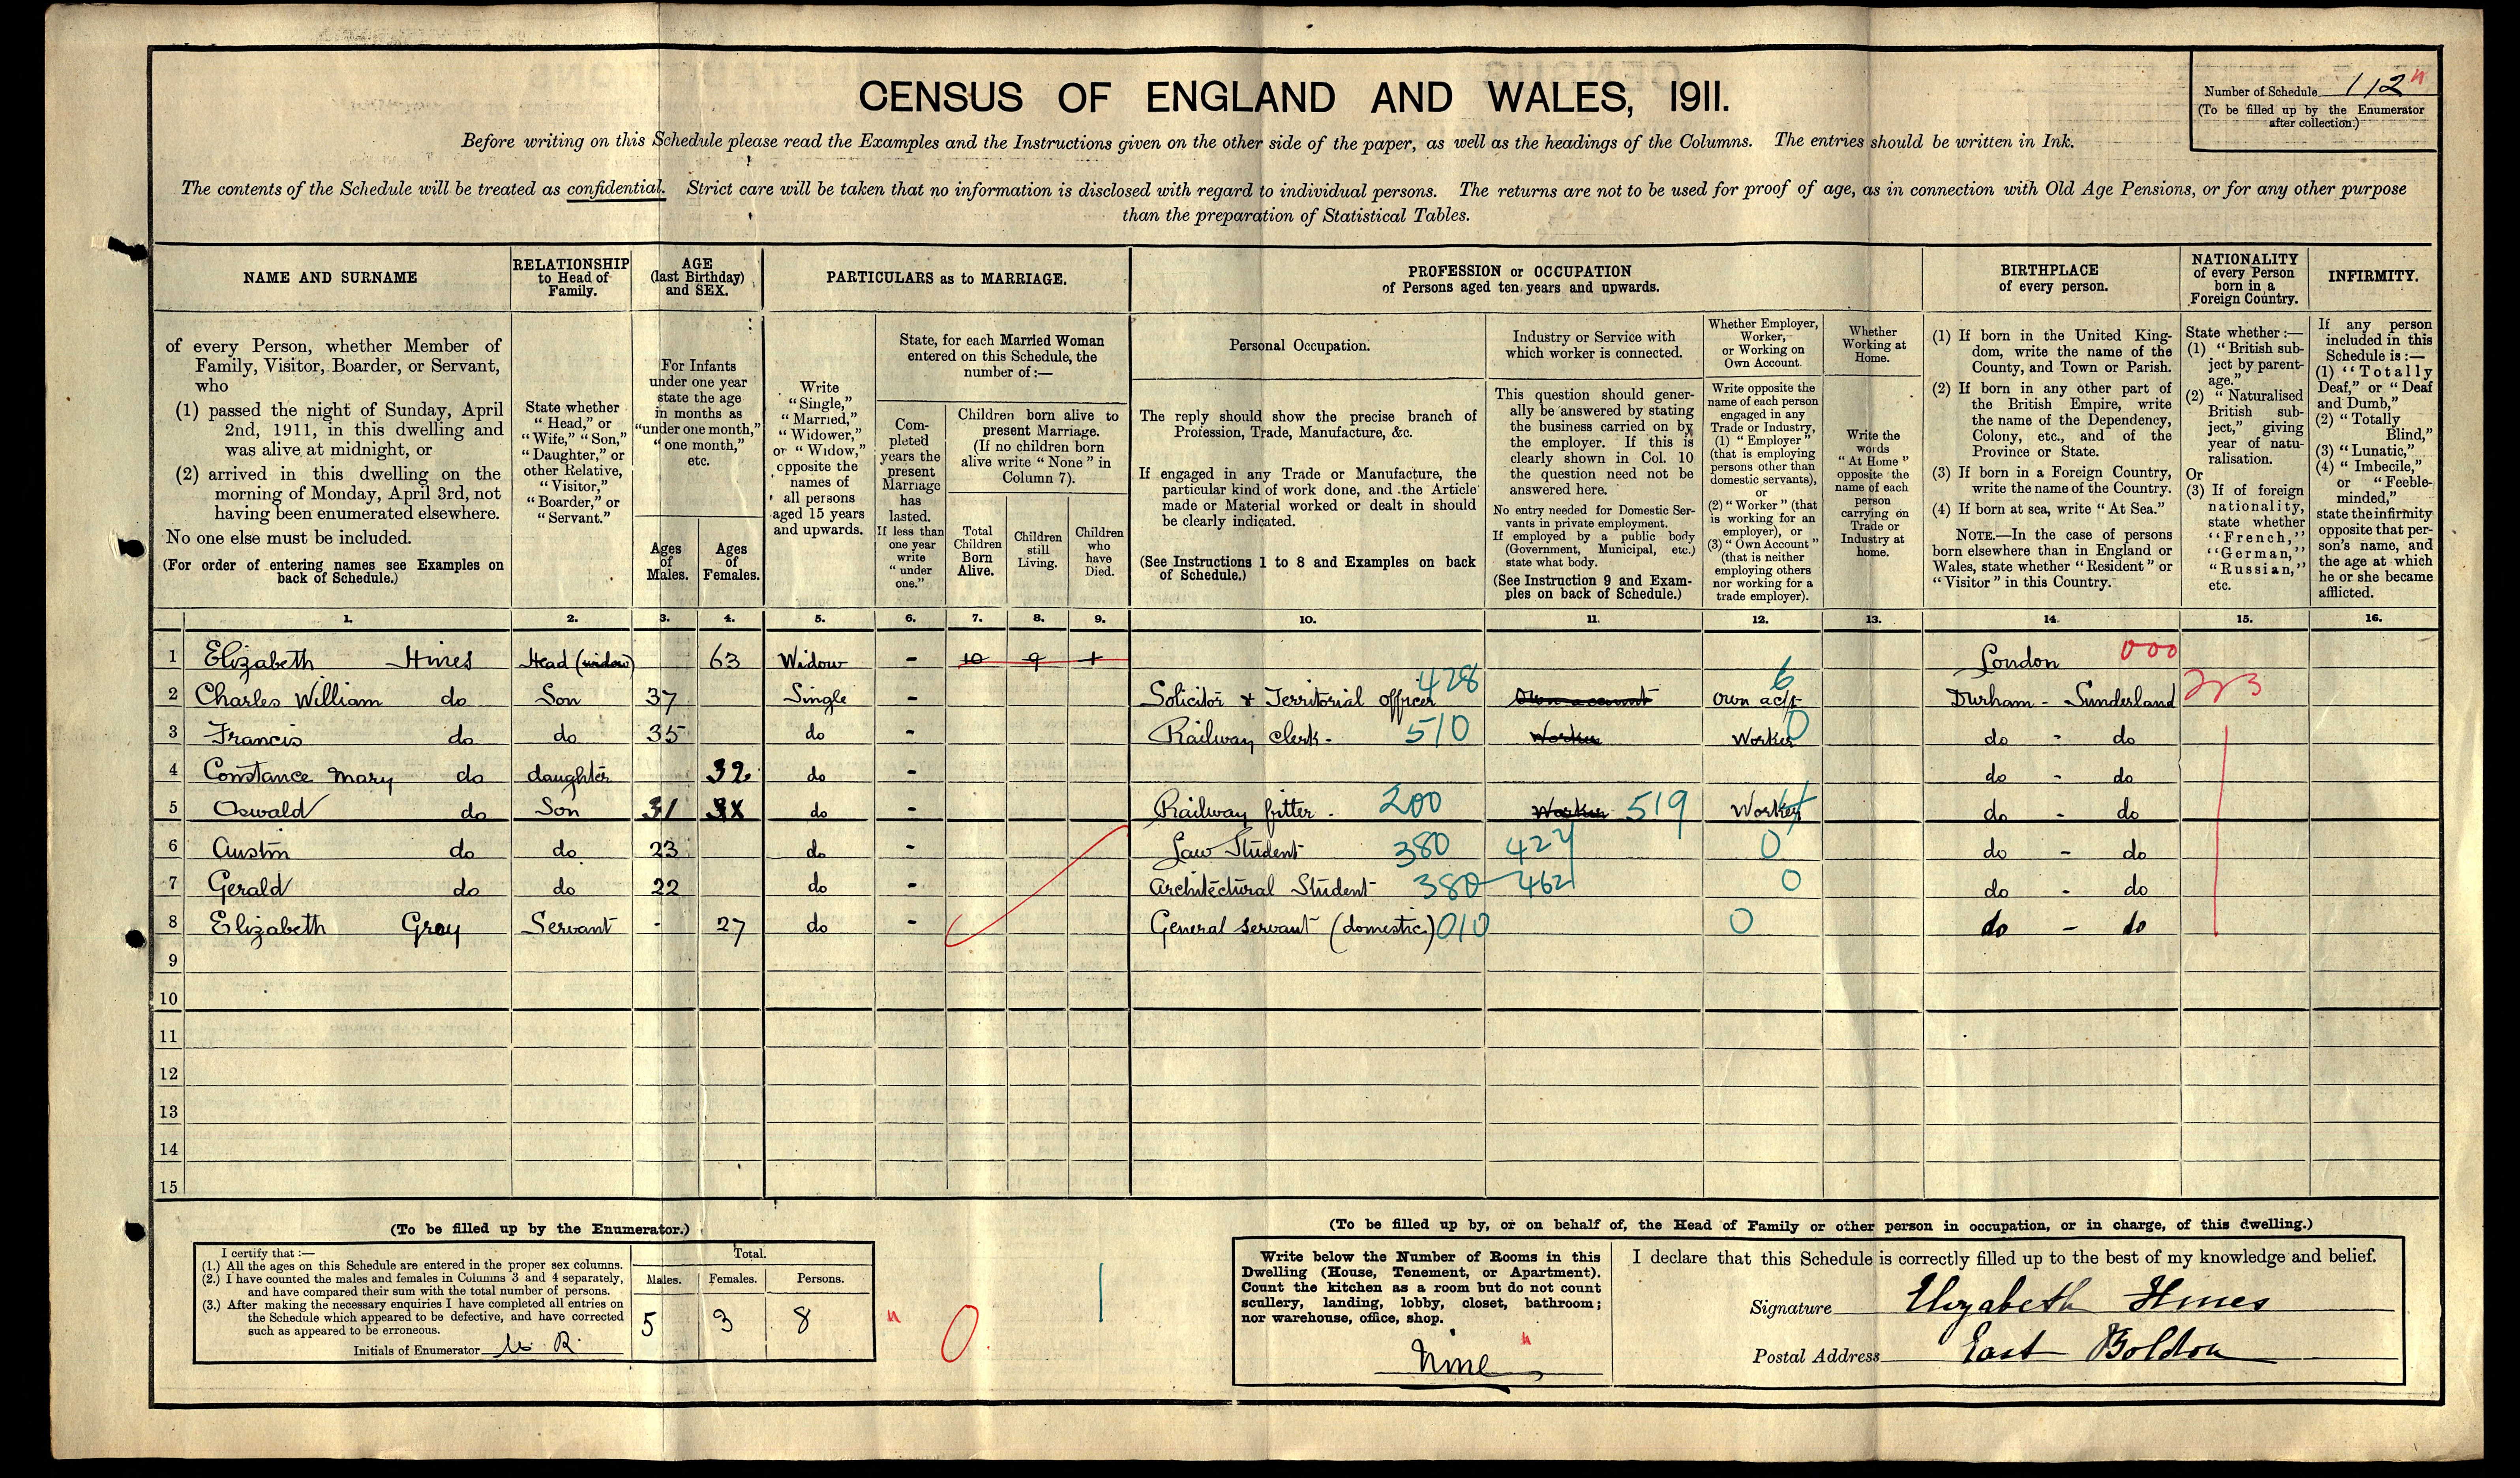 CENSUS OF ENGLAND AND WALES, 1911.
Number of Schedule 112
(To be filled up by the Enumerator
after collection.)
Before writing on this Schedule please read the Examples and the Instructions given on the other side of the paper, as well as the headings of the Columns. The entries should be written in Ink.
The contents of the Schedule will be treated as confidential. Strict care will be taken that no information is disclosed with regard to individual persons. The returns are not to be used for proof of age, as in connection with Old Age Pensions, or for any other purpose
than the preparation of Statistical Tables.
NAME AND SURNAME
of every Person, whether Member of
Family, Visitor, Boarder, or Servant,
who
(1) passed the night of Sunday, April
2nd, 1911, in this dwelling and
was alive at midnight, or
(2) arrived in this dwelling on the
morning of Monday, April 3rd, not
having been enumerated elsewhere.
No one else must be included.
(For order of entering names see Examples on
back of Schedule.)
RELATIONSHIP
to Head of
Family.
State whether
"Head," or
"Wife," "Son,"
"Daughter," or
other Relative,
"Visitor,"
"Boarder," or
"Servant."
AGE
(last Birthday)
and SEX.
For Infants
under one year
state the age
in months as
"under one month,"
"one month,"
etc.
Ages
of
Males.
Ages
of
Females.
PARTICULARS as to MARRIAGE.
Write
"Single,"
"Married,"
"Widower,"
or "Widow,"
opposite the
names of
all persons
aged 15 years
and upwards.
State, for each Married Woman
entered on this Schedule, the
number of:—
Com-
pleted
years the
present
Marriage
has
lasted.
If less than
one year
write
"under
one."
Children born alive to
present Marriage.
(If no children born
alive write "None" in
Column 7).
Total
Children
Born
Alive.
Children
still
Living.
Children
who
have
Died.
PROFESSION or OCCUPATION
of Persons aged ten years and upwards.
Personal Occupation.
The reply should show the precise branch of
Profession, Trade, Manufacture, &c.
If engaged in any Trade or Manufacture, the
particular kind of work done, and the Article
made or Material worked or dealt in should
be clearly indicated.
(See Instructions 1 to 8 and Examples on back
of Schedule.)
Industry or Service with
which worker is connected.
This question should gener-
ally be answered by stating
the business carried on by
the employer. If this is
clearly shown in Col. 10
the question need not be
answered here.
No entry needed for Domestic Ser-
vants in private employment.
If employed by a public body
(Government, Municipal, etc.)
state what body.
(See Instruction 9 and Exam-
ples on back of Schedule.)
Whether Employer,
Worker,
or Working on
Own Account.
Write opposite the
name of each person
engaged in any
Trade or Industry,
(1) "Employer"
(that is employing
persons other than
domestic servants),
or
(2) "Worker" (that
is working for an
employer), or
(3) "Own Account"
(that is neither
employing others
nor working for a
trade employer).
Whether
Working at
Home.
Write the
words
"At Home"
opposite the
name of each
person
carrying on
Trade or
Industry at
home.
BIRTHPLACE
of every person.
(1) If born in the United King-
dom, write the name of the
County, and Town or Parish.
(2) If born in any other part of
the British Empire, write
the name of the Dependency,
Colony, etc., and of the
Province or State.
(3) If born in a Foreign Country,
write the name of the Country.
(4) If born at sea, write "At Sea."
NOTE.—In the case of persons
born elsewhere than in England or
Wales, state whether "Resident" or
"Visitor" in this Country.
NATIONALITY
of every Person
born in a
Foreign Country.
State whether:—
(1) "British sub-
ject by parent-
age."
(2) "Naturalised
British sub-
ject," giving
year of natu-
ralisation.
Or
(3) If of foreign
nationality,
state whether
"French,"
"German,"
"Russian,"
etc.
INFIRMITY.
If any person
included in this
Schedule is:—
(1) "Totally
Deaf," or "Deaf
and Dumb,"
(2) "Totally
Blind,"
(3) "Lunatic,"
(4) "Imbecile,"
or "Feeble-
minded,"
state the infirmity
opposite that per-
son's name, and
the age at which
he or she became
afflicted.
1. 2. 3. 4. 5. 6. 7. 8. 9. 10. 11. 12. 13. 14. 15. 16.
1 Elizabeth Hines Head (widow) 63 Widow - 10 9 1 London 000
2 Charles William do Son 37 Single - Solicitor & Territorial officer 428 Own account own ac/t 6 Durham - Sunderland 223
3 Francis do do 35 do - Railway clerk - 510 Worker Worker 0 do - do
4 Constance Mary do daughter 32 do - do - do
5 Oswald do Son 31 do - Railway fitter - 200 Worker 519 Worker do - do
6 Austin do do 23 do - Law Student 380 427 0 do - do
7 Gerald do do 22 do - Architectural Student 380 462 0 do - do
8 Elizabeth Gray Servant - 27 do - General servant (domestic) 010 0 do - do
9
10
11
12
13
14
15
(To be filled up by the Enumerator.)
I certify that:—
(1.) All the ages on this Schedule are entered in the proper sex columns.
(2.) I have counted the males and females in Columns 3 and 4 separately,
and have compared their sum with the total number of persons.
(3.) After making the necessary enquiries I have completed all entries on
the Schedule which appeared to be defective, and have corrected
such as appeared to be erroneous.
Initials of Enumerator
Total.
Males. Females. Persons.
5 3 8
0
(To be filled up by, or on behalf of, the Head of Family or other person in occupation, or in charge, of this dwelling.)
Write below the Number of Rooms in this
Dwelling (House, Tenement, or Apartment).
Count the kitchen as a room but do not count
scullery, landing, lobby, closet, bathroom;
nor warehouse, office, shop.
Nine
I declare that this Schedule is correctly filled up to the best of my knowledge and belief.
Signature Elizabeth Hines
Postal Address East Boldon